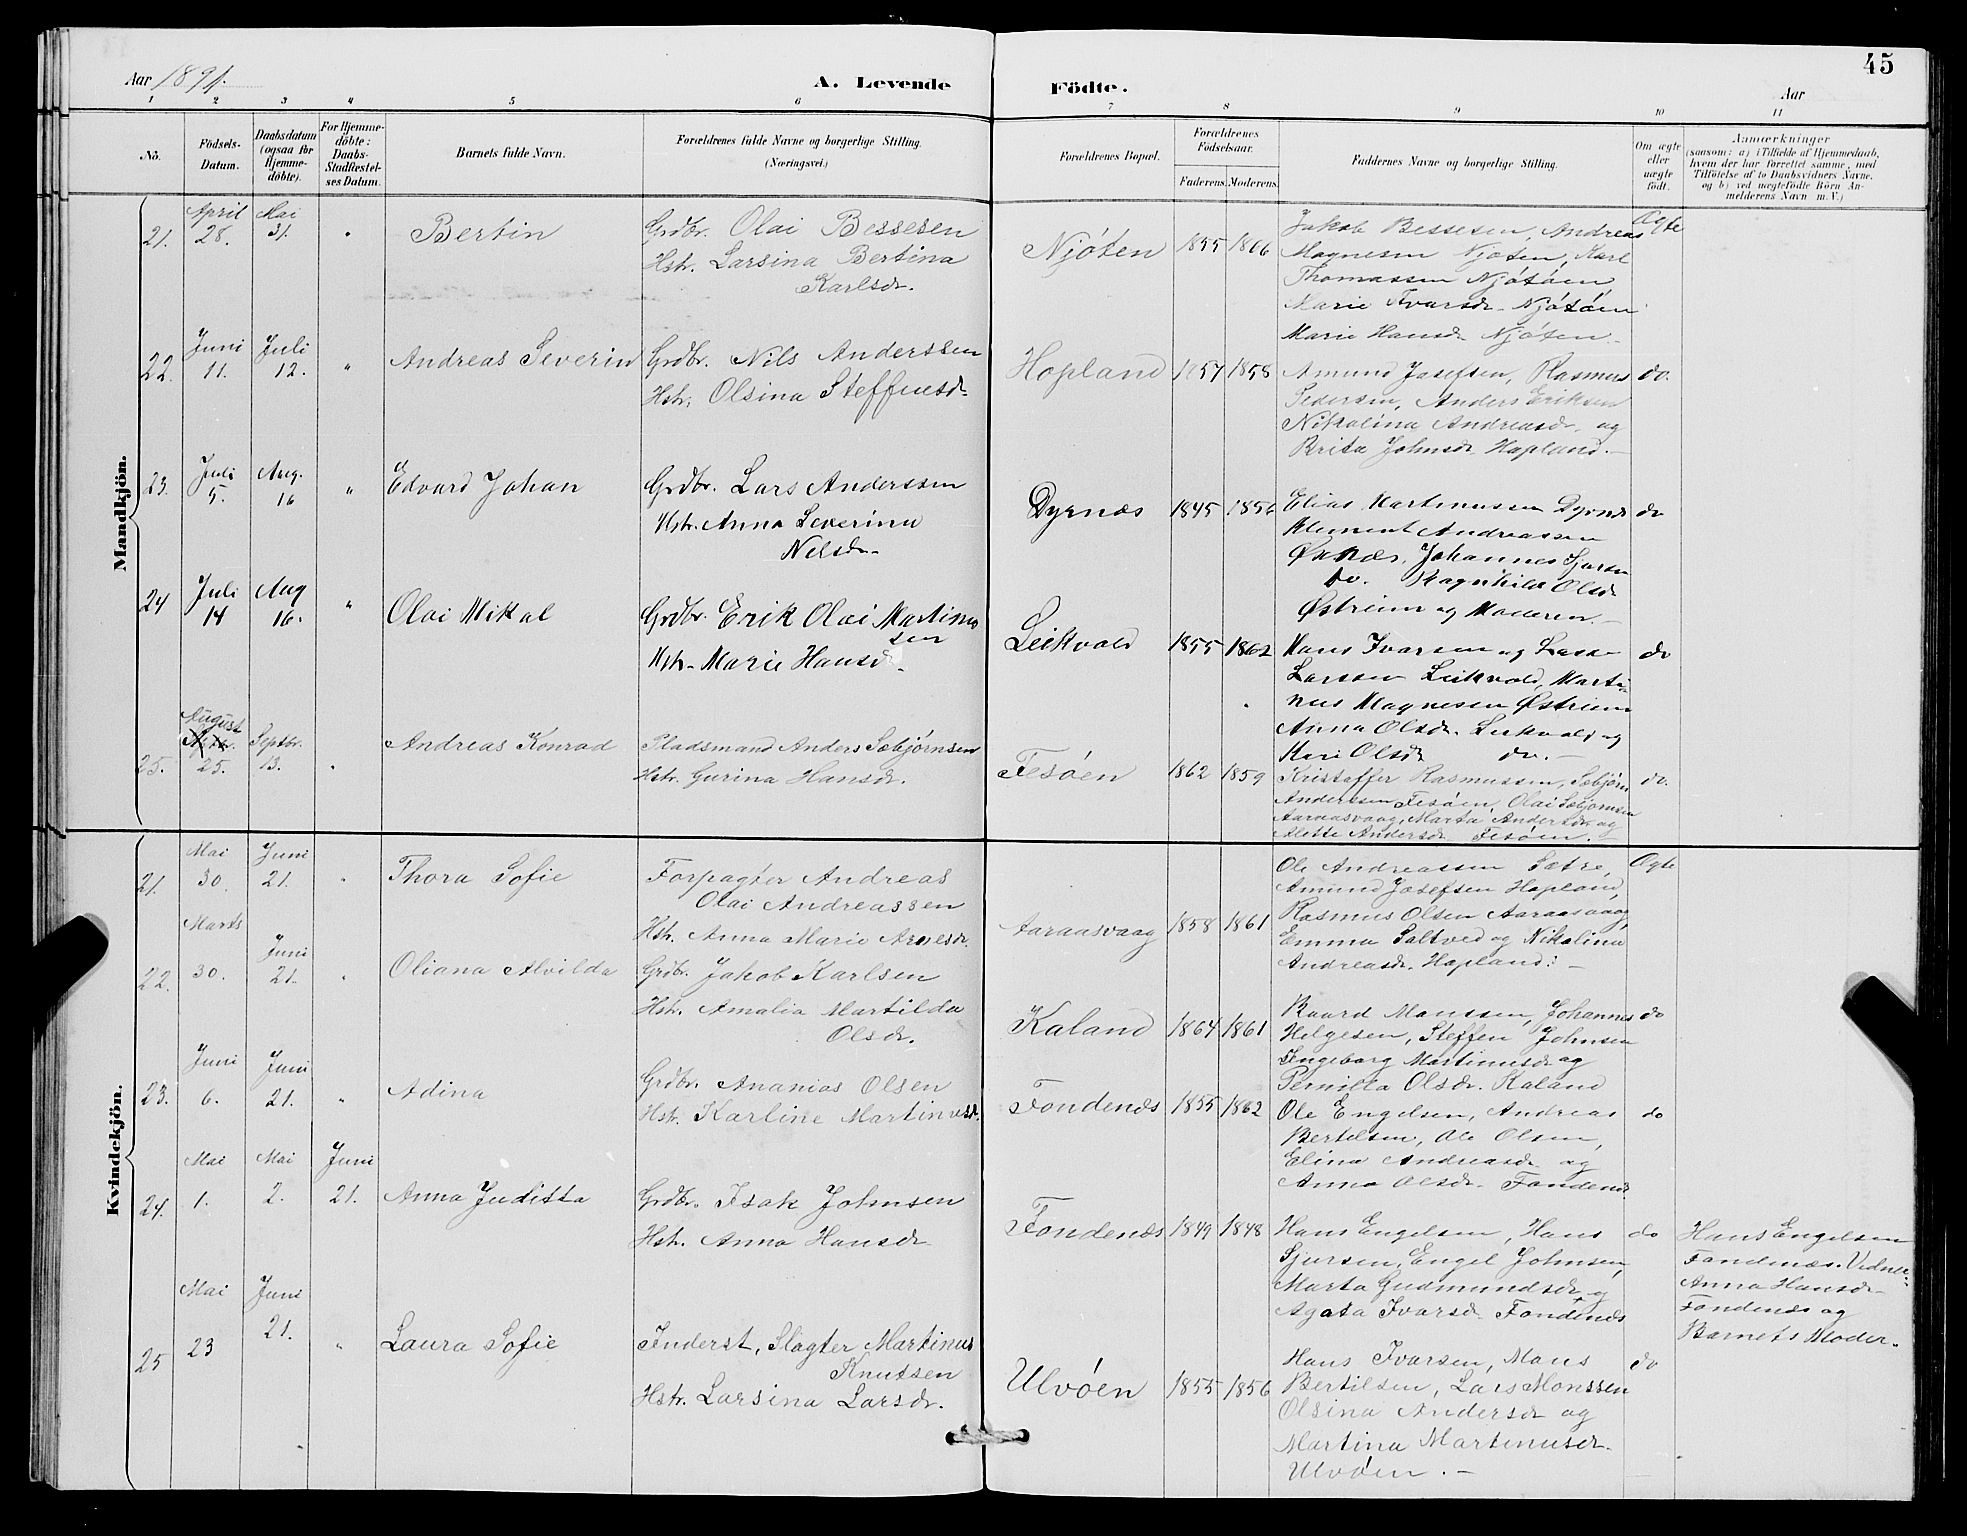 45
Aar 1891. A. Levende Födte. Aar
1 2 3 4 5 6 7 8 9 10 11
No.
Födsels-
Datum.
Daabsdatum
(ogsaa for
Hjemme-
döbte).
For Hjemme-
döbte:
Daabs-
Stadfæstel-
ses Datum.
Barnets fulde Navn.
Forældrenes fulde Navne og borgerlige Stilling.
(Næringsvei.)
Forældrenes Bopæl.
Forældrenes
Födselsaar.
Faderens. Moderens.
Faddernes Navne og borgerlige Stilling.
Om ægte
eller
uægte
födt.
Anmærkninger
(saasom: a) i Tilfælde af Hjemmedaab,
hvem der har forrettet samme, med
Tilföielse af to Daabsvidners Navne,
og b) ved uægtefödte Börn An-
melderens Navn m. V.)
Mandkjön.
21. April 28. Mai 31. " Bertin
Grdbr. Olai Bessesen
Hstr. Larsina Bertina
Karlsdr.
Njöten 1855 1866
Jakob Bessesen, Andreas
Magnesen Njöten, Karl
Thomassen Njötöen
Marie Ivarsdr. Njötöen
Marie Hansdr. Njöten.
Ægte
22. Juni 11. Juli 12. " Andreas Severin
Grdbr. Nils Anderssen
Hstr. Olsina Steffensdr.
Hopland 1857 1858
Amund Josefsen, Rasmus
Pedersen, Anders Eriksen
Nikolina Andreasdr. og
Brita Johnsdr. Hopland.
do.
23. Juli 5. Aug. 16 " Edvard Johan
Grdbr. Lars Anderssen
Hstr. Anna Severina
Nilsdr.
Dyrnæs 1845 1856
Elias Martinussen Dyrnæs
Klement Andreassen
Øxnæs, Johannes Sjursen
do. Ragnhild Olsdr.
Østreim og Moderen.
do
24 Juli 14 Aug 16. " Olai Mikal
Grdbr. Erik Olai Martinus
sen
Hstr. Marie Hansdr.
Leikvold 1855 1862
Hans Ivarsen og Lasse
Larssen Leikvold, Marti-
nus Magnesen Østreim
Anna Olsdr. Leikvold og
Kari Olsdr. do.
do
25. August 25. Septbr. 13. " Andreas Konrad
Pladsmand Anders Sæbjørnsen
Hstr. Gurina Hansdr.
Fesöen 1862 1859
Kristoffer Rasmussen, Sæbjørn
Anderssen Fesöen, Olai Sæbjørnsen
Aaraasvaag, Marta Andersdr. og
Mette Andersdr. Fesöen.
do.
Kvindekjön.
21. Mai 30. Juni 21. " Thora Sofie
Forpagter Andreas
Olai Andreassen
Hstr. Anna Marie Arnesdr.
Aaraasvaag 1858 1861
Ole Andreassen Sætre,
Amund Josefsen Hopland,
Rasmus Olsen Aaraasvaag,
Emma Saltved og Nikolina
Andreasdr. Hopland.
Ægte
22. Marts 30. Juni 21. " Oliana Alvilda
Grdbr. Jakob Karlsen
Hstr. Amalia Martilda
Olsdr.
Kaland 1864 1861
Baard Monssen, Johannes
Helgesen, Steffen Johnsen
Ingeborg Martinusdr. og
Pernilla Olsdr. Kaland
do
23. Juni 6. Juni 21. " Adina
Grdbr. Ananias Olsen
Hstr. Karline Martinusdr.
Fondenæs 1855 1862
Ole Engelsen, Andreas
Bertelsen, Ole Olsen,
Elina Andreasdr. og
Anna Olsdr. Fondenæs.
do
24. Mai 1. Mai 2. Juni 21. Anna Juditta
Grdbr. Isak Johnsen
Hstr. Anna Hansdr
Fondenæs 1849 1848
Hans Engelsen, Hans
Sjursen, Engel Johnsen,
Marta Gudmundsdr. og
Agata Ivarsdr. Fondenæs
do
Hans Engelsen
Fondenæs. Vidne:
Anna Hansdr
Fondenæs og
Barnets Moder.
25 Mai 23 Juni 21. " Laura Sofie
Inderst, Slagter Martinus
Knutsen
Hstr. Larsina Larsdr.
Ulvöen 1855 1856
Hans Ivarsen, Mons
Bertilsen, Lars Monssen
Olsina Andersdr og
Martina Martinusdr.
Ulvöen.
do